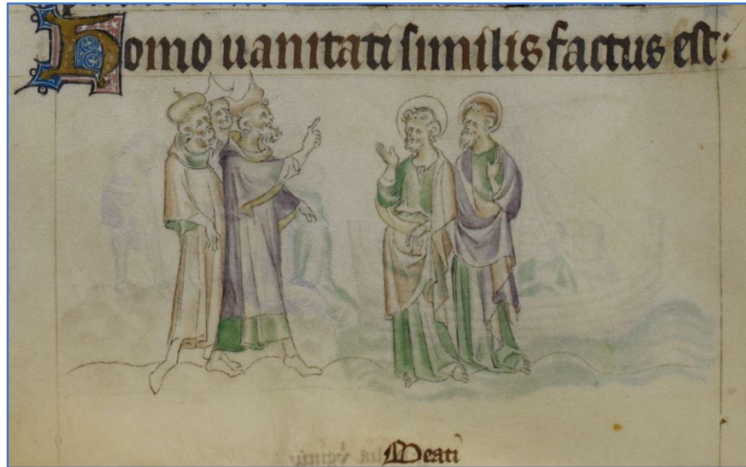 Homo uanitati similis factus est:
Meati